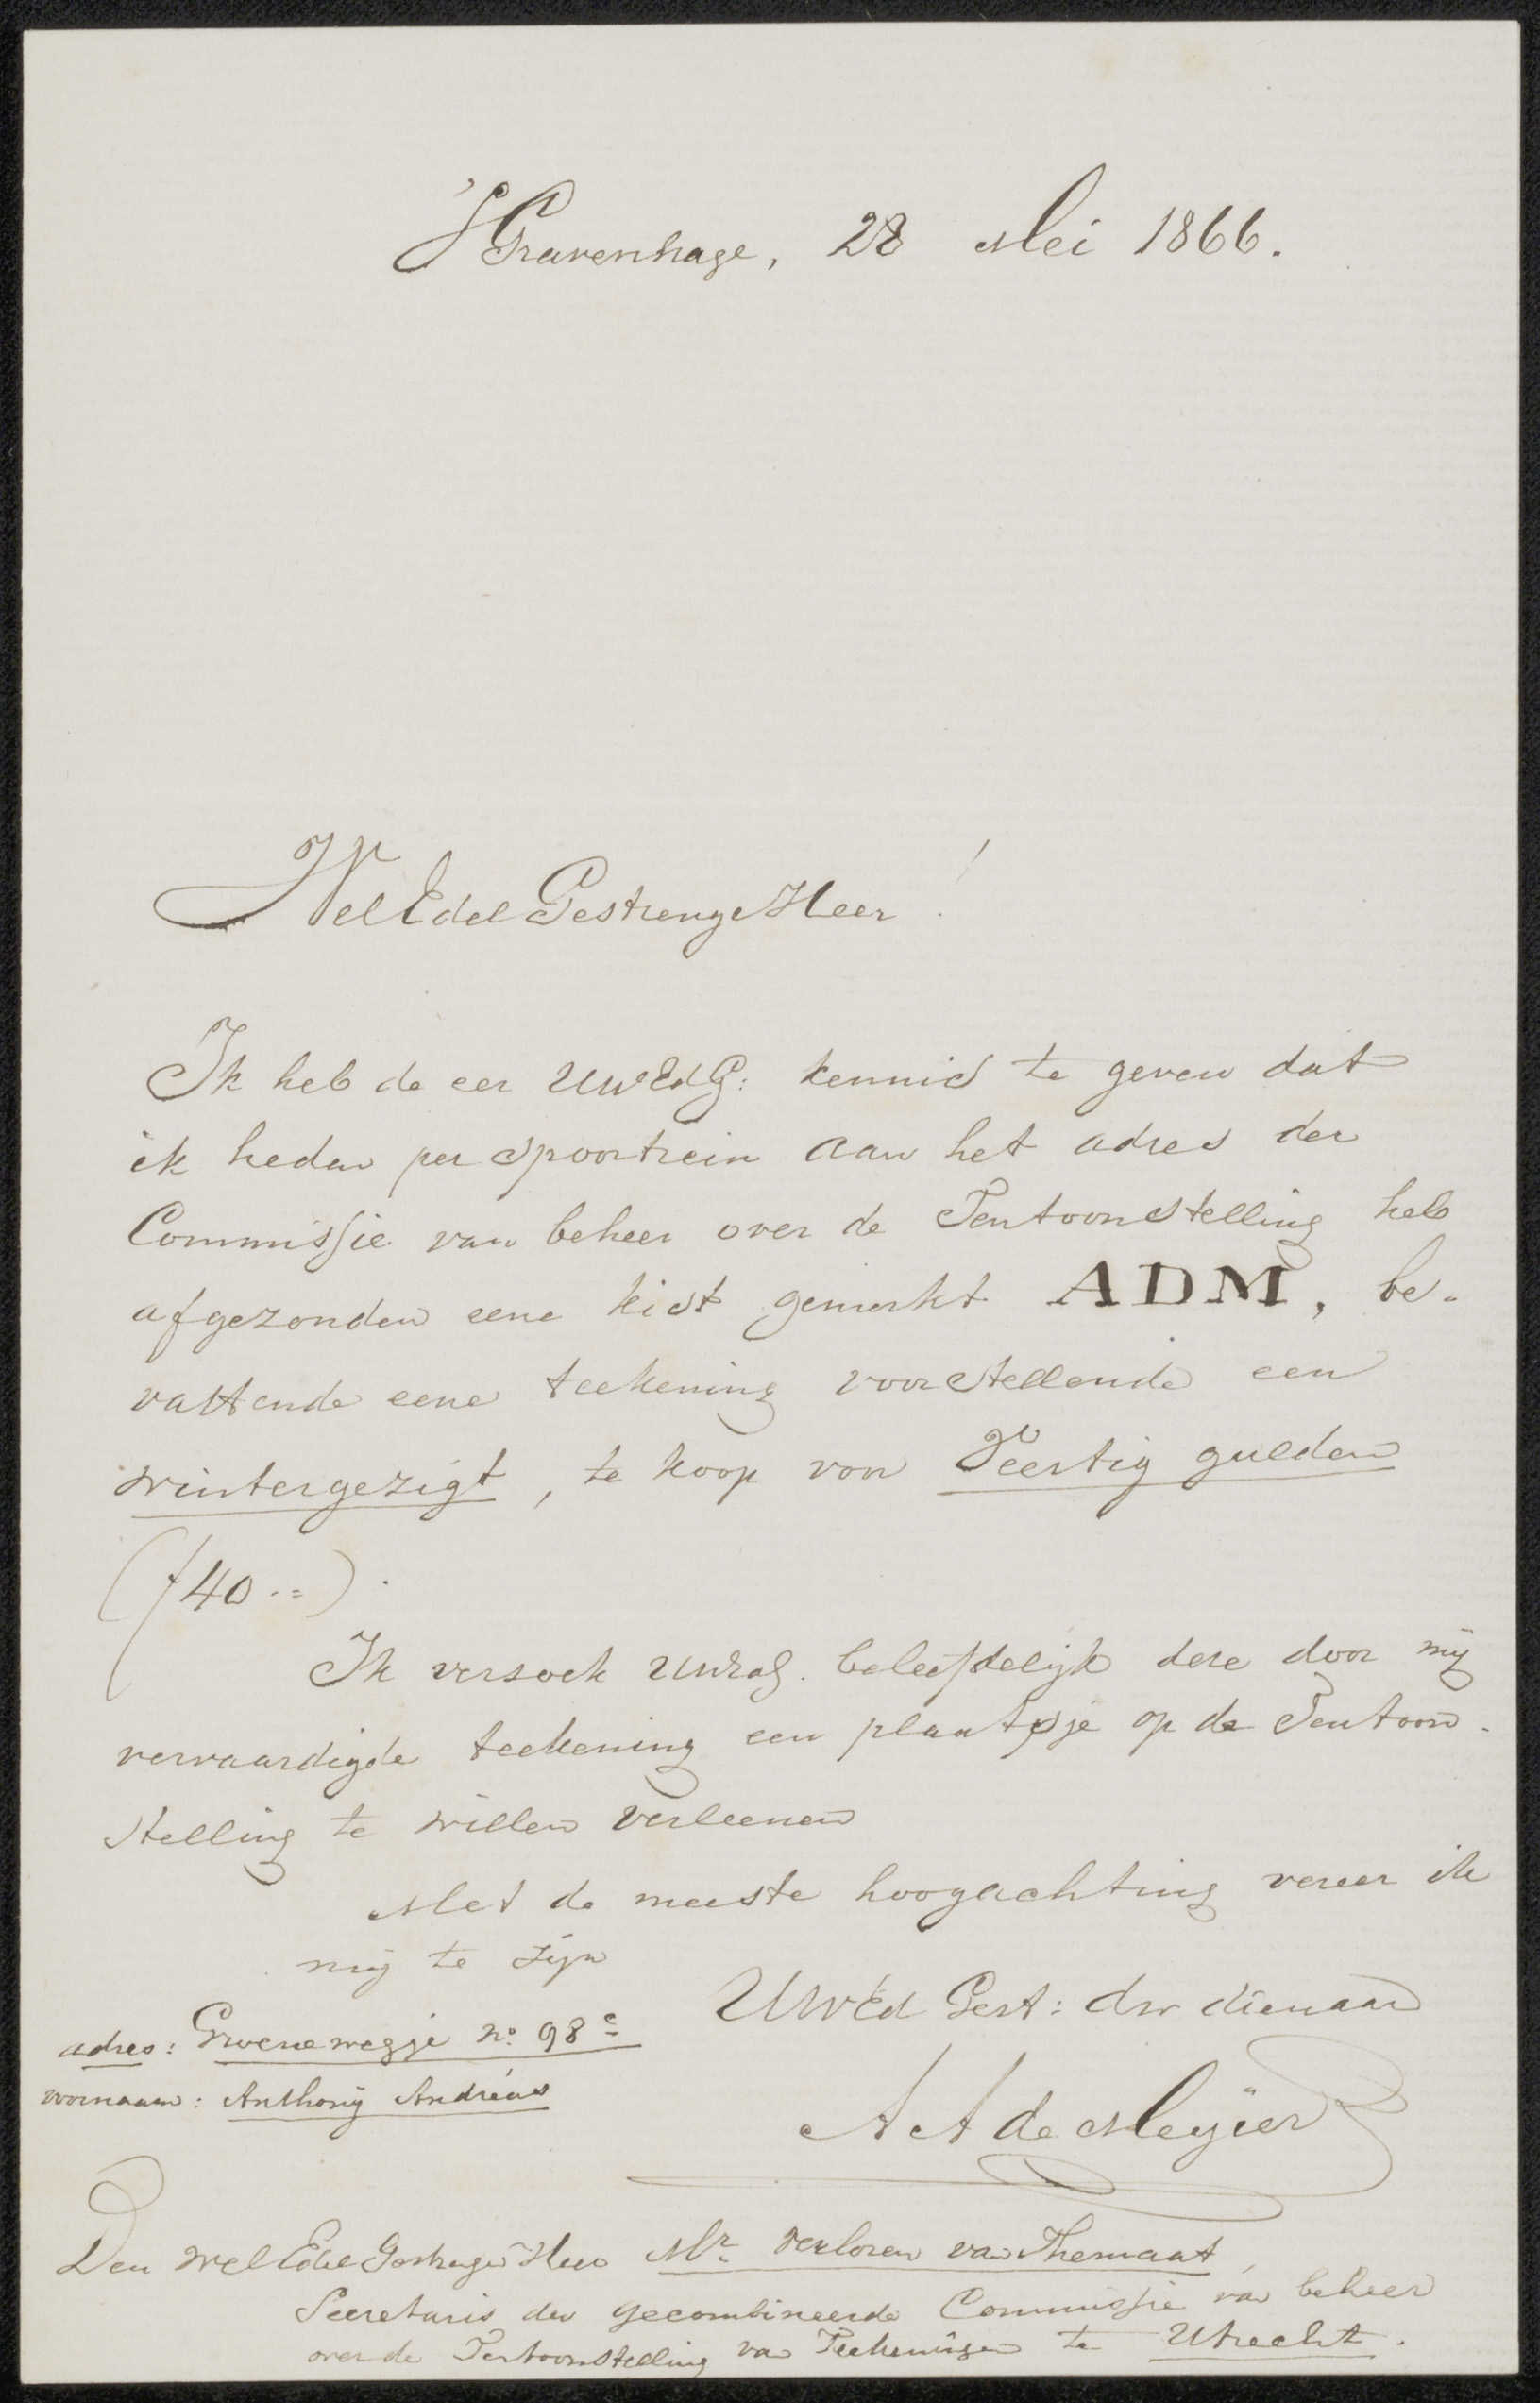 'SGravenhage, 28 Mei 1866.
WelEdelGestrenge Heer!
Ik heb de eer UwEdG: kennis te geven dat
ik heden per spoortrein aan het adres der
Commissie van beheer over de Tentoonstelling heb
afgezonden eene kist gemerkt ADM, be-
vattende eene teekening voorstellende een
wintergezigt, te koop voor Veertig gulden
(f 40.=).
Ik versoek UwEdG. beleefdelijk deze door mij
vervaardigde teekening een plaatsje op de Tentoon-
stelling te willen verleenen
Met de meeste hoogachting vereer ik
mij te zijn
UwEd Gest: dw dienaar
adres: Groenewegje No. 98c
voornaam: Anthonij Andréas
A A de Meijier
Den WelEdelGestrengen Heer Mr. Verloren van Themaat,
Secretaris der gecombineerde Commissie van beheer
over de Tentoonstelling van Teekeningen te Utrecht.